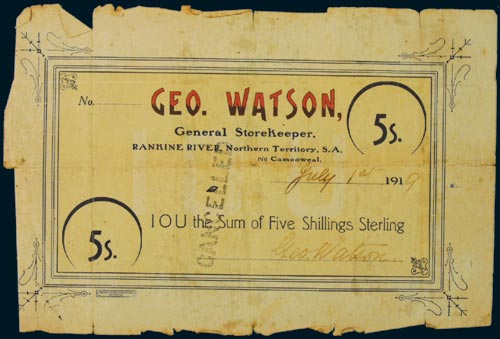 No.
GEO. WATSON,
General Storekeeper.
RANKINE RIVER, Northern Territory, S.A.
Via Camooweal.
5s.
July 1st 1919
CANCELLED
I O U the Sum of Five Shillings Sterling
5s.
Geo. Watson